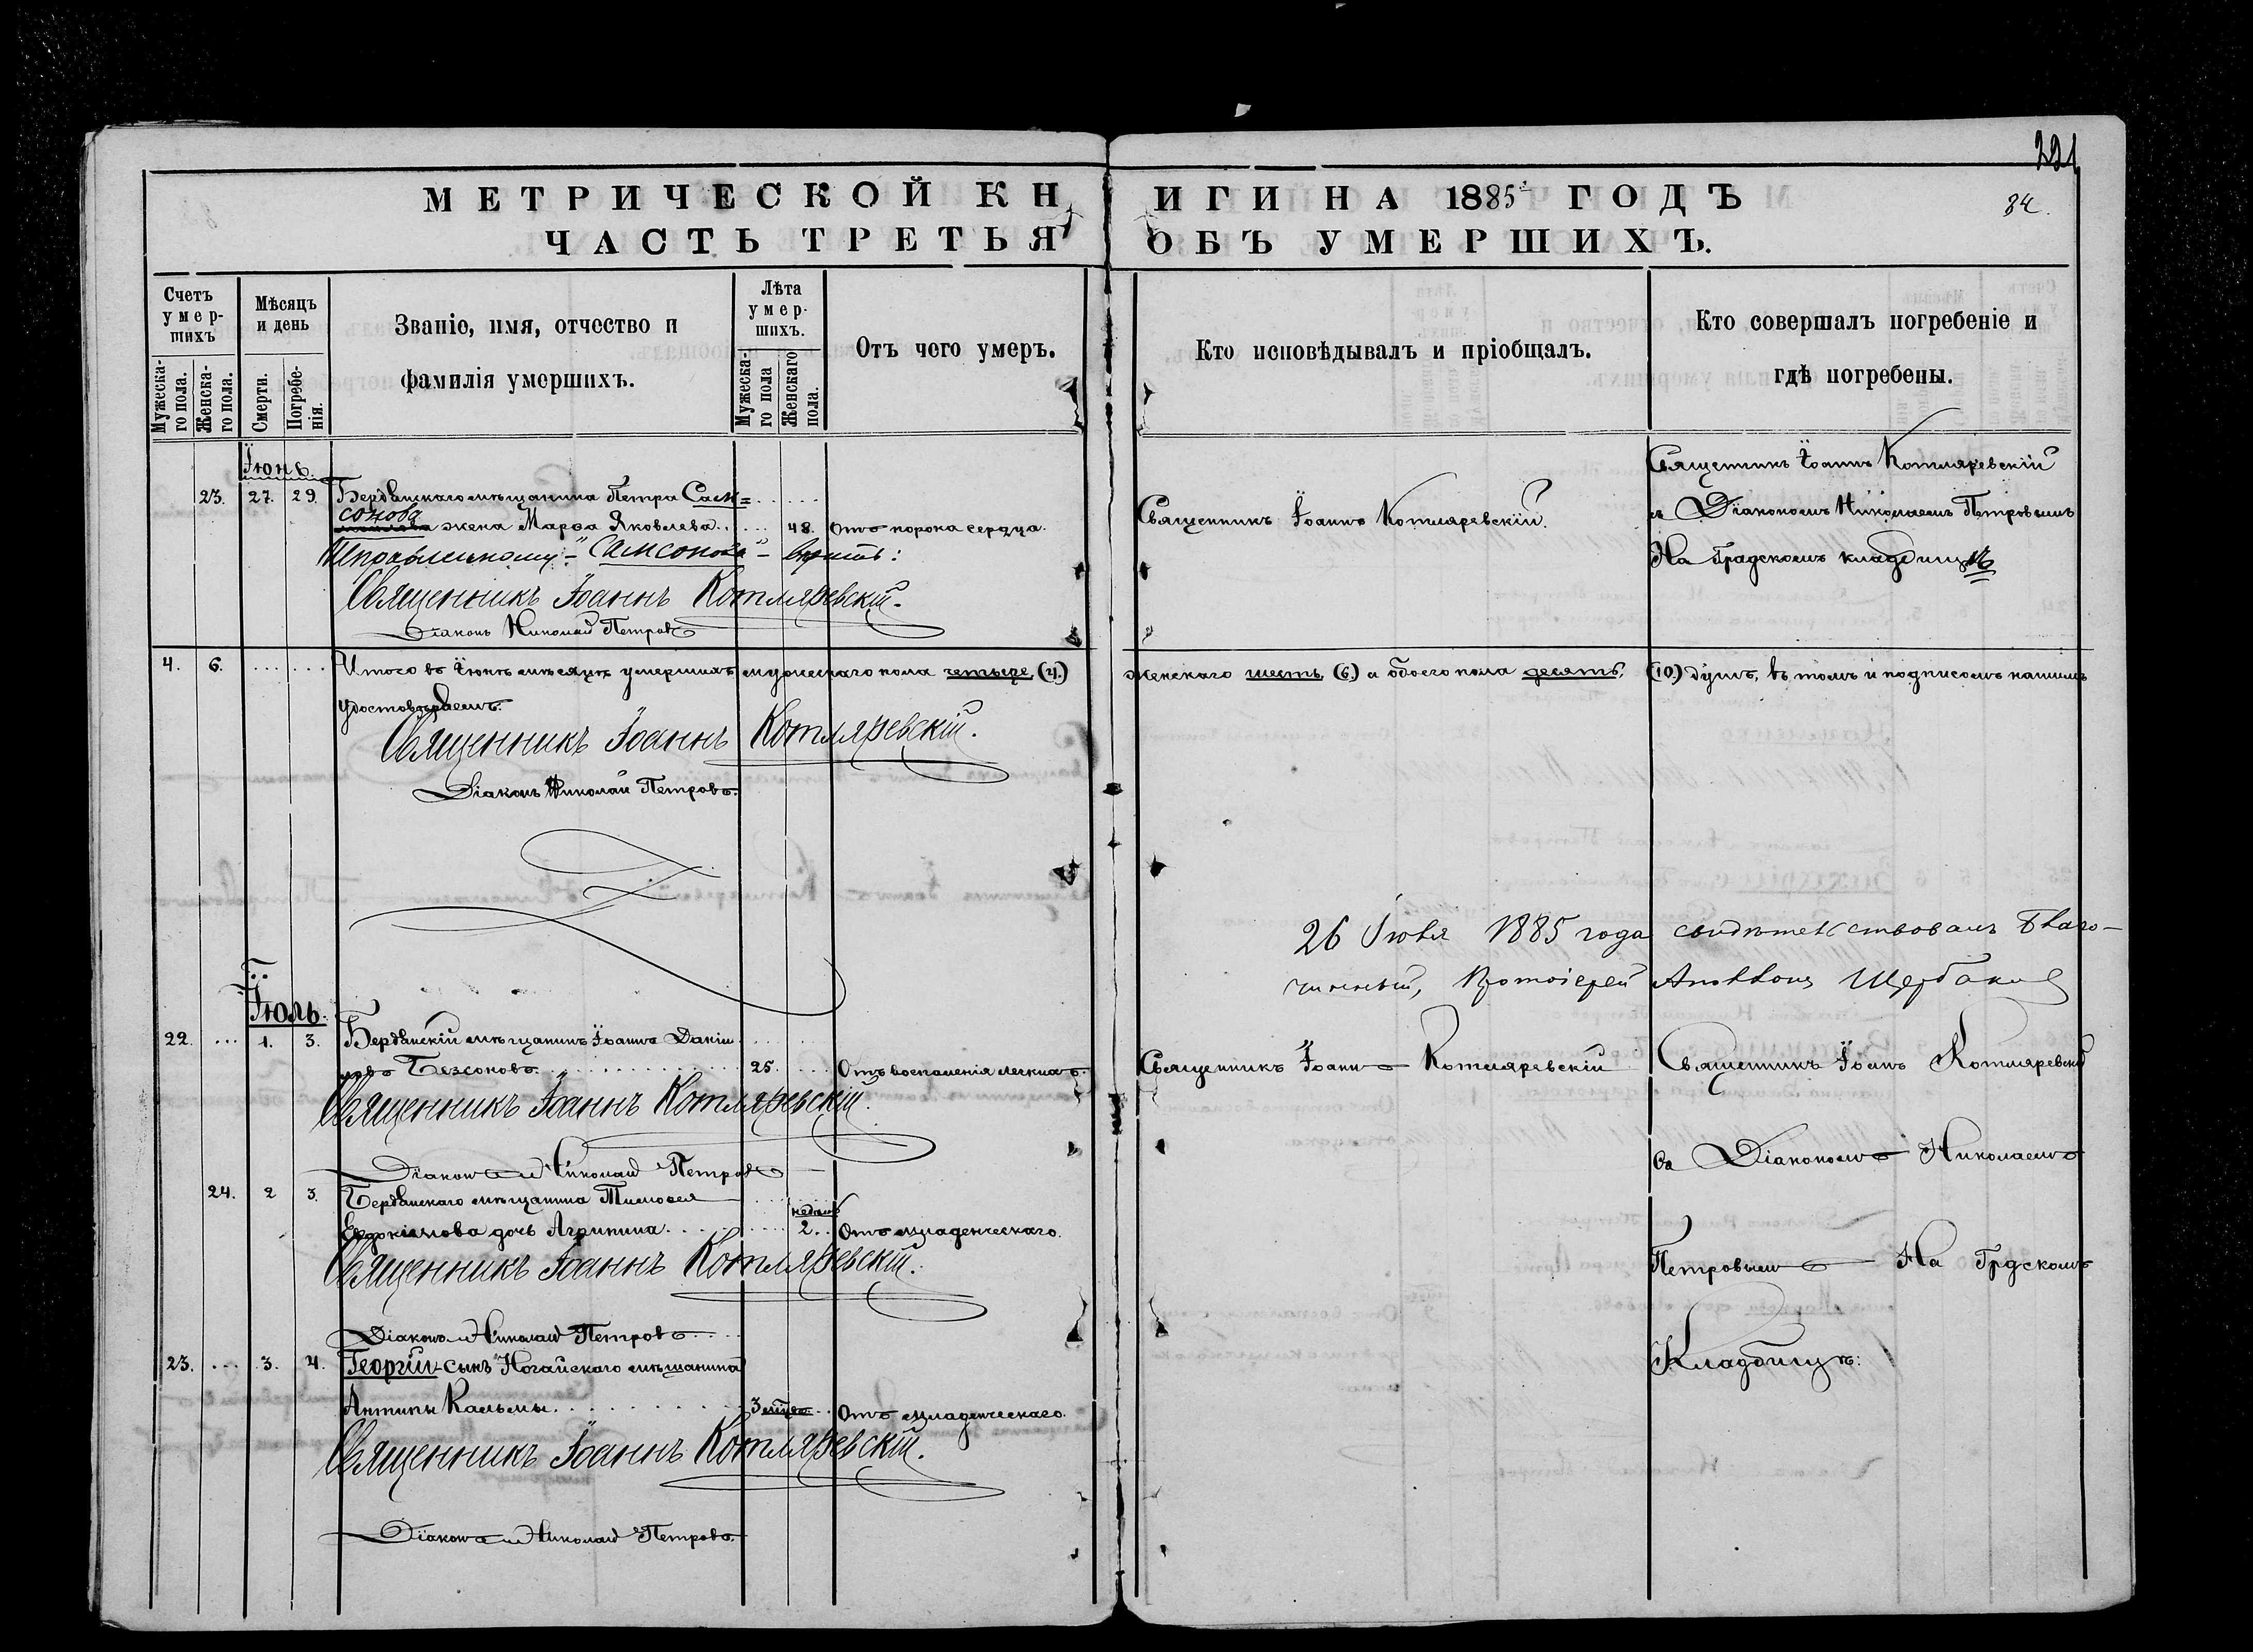 221
МЕТРИЧЕСКОЙ КНИГИ НА 1885 ГОДЪ
84.
ЧАСТЬ ТРЕТЬЯ ОБЪ УМЕРШИХЪ.
Счетъ умер-шихъ
Мужеска-го пола.
Женска-го пола.
Мѣсяцъ и день
Смерти.
Погребе-нія.
Званіе, имя, отчество и
фамилія умершихъ.
Лѣта умер-шихъ.
Мужеска-го пола
Женскаго пола.
Отъ чего умеръ.
Кто исповѣдывалъ и пріобщалъ.
Кто совершалъ погребеніе и
гдѣ погребены.
Іюнь.
23. 27. 29. Бердянскаго мѣщанина Петра Сам=
сонова жена Марѳа Яковлева 48. Отъ порока сердца.
Священникъ Іоаннъ Котляревскій.
Священникъ Іоаннъ Котляревскій
съ Діакономъ Николаемъ Петровымъ
На Градскомъ кладбищѣ
"Самсонова" вѣрить:
Священникъ Іоаннъ Котляревскій.
Діаконъ Николай Петровъ
4. 6. Итого въ Іюнѣ мѣсяцѣ умершихъ мужескаго пола четыре (4.) женскаго шесть (6.) а обоего пола десять (10.) душъ, въ томъ и подписомъ нашимъ
удостовѣряемъ.
Священникъ Іоаннъ Котляревскій.
Діаконъ Николай Петровъ.
26 Іюля 1885 года свидѣтельствовалъ Благо-
чинный, Протоіерей Аполлонъ Щербаковъ
Іюль.
22. 1. 3. Бердянскій мѣщанинъ Іоаннъ Данiи
ловъ Безсоновъ 25. Отъ воспаленія легкихъ.
Священникъ Іоаннъ Котляревскій
Священникъ Іоаннъ Котляревскій
Священникъ Іоаннъ Котляревскій.
Діаконъ Николай Петровъ
Съ Діакономъ Николаемъ
24. 2 3. Бердянскаго мѣщанина Тимоѳея
Евдокимова дочь Агрипина недѣль 2. Отъ младенческаго.
Священникъ Іоаннъ Котляревскій.
Петровымъ На Грдскомъ
Діаконъ Николай Петровъ
23. 3. 4. Георгій сынъ Ногайскаго мѣщанина
Кладбищѣ:
Антипы Кальмы 3 мѣсц. Отъ младенческаго.
Священникъ Іоаннъ Котляревскій.
Діаконъ Николай Петровъ.